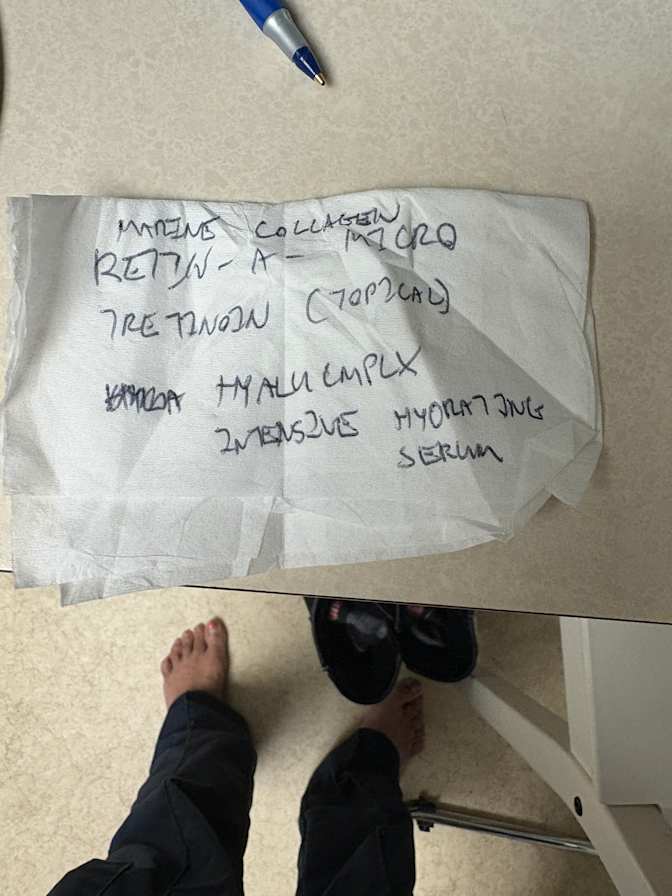 MARINE COLLAGEN
RETIN-A- MICRO
TRETINOIN (TOPICAL)
HYALU CMPLX
INTENSIVE HYDRATING
SERUM